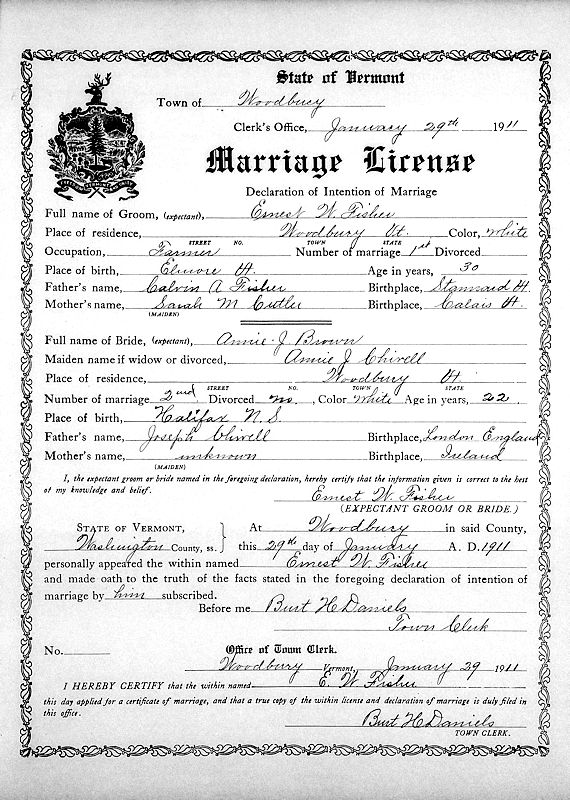 State of Vermont
Town of Woodbury
Clerk's Office, January 29th 1911
Marriage License
Declaration of Intention of Marriage
Full name of Groom, (expectant), Ernest W. Fisher
Place of residence, Woodbury Vt. Color, White
STREET NO. TOWN STATE
Occupation, Farmer Number of marriage 1st Divorced
Place of birth, Elmore Vt. Age in years, 30
Father's name, Calvin A Fisher Birthplace, Stannard Vt.
Mother's name, Sarah M Cutler Birthplace, Calais Vt.
(MAIDEN)
Full name of Bride, (expectant), Annie J Brown
Maiden name if widow or divorced, Annie J Chivell
Place of residence, Woodbury Vt.
STREET NO. TOWN STATE
Number of marriage 2nd, Divorced no., Color White Age in years, 22.
Place of birth, Halifax N.S.
Father's name, Joseph Chivell Birthplace, London England
Mother's name, unknown Birthplace, Ireland
(MAIDEN)
I, the expectant groom or bride named in the foregoing declaration, hereby certify that the information given is correct to the best
of my knowledge and belief.
Ernest W. Fisher
(EXPECTANT GROOM OR BRIDE.)
STATE OF VERMONT, At Woodbury in said County,
Washington County, ss. this 29th day of January A. D. 1911
personally appeared the within named Ernest W. Fisher
and made oath to the truth of the facts stated in the foregoing declaration of intention of
marriage by him subscribed.
Before me Burt H Daniels
Town Clerk
No.
Office of Town Clerk.
Woodbury Vermont, January 29 1911
I HEREBY CERTIFY that the within named E. W. Fisher
this day applied for a certificate of marriage, and that a true copy of the within license and declaration of marriage is duly filed in
this office.
Burt H Daniels
TOWN CLERK.